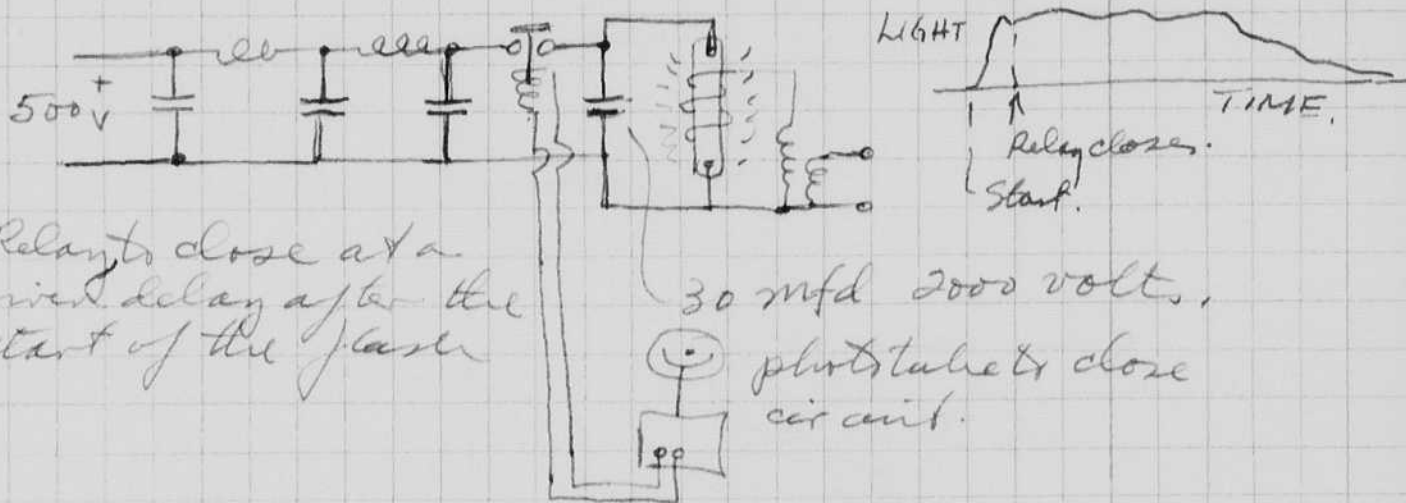 LIGHT
500 V
+
TIME.
Relay closes.
Start.
Relay to close at a
given delay after the
start of the flash
30 mfd 2000 volts.
phototube to close
circuit.